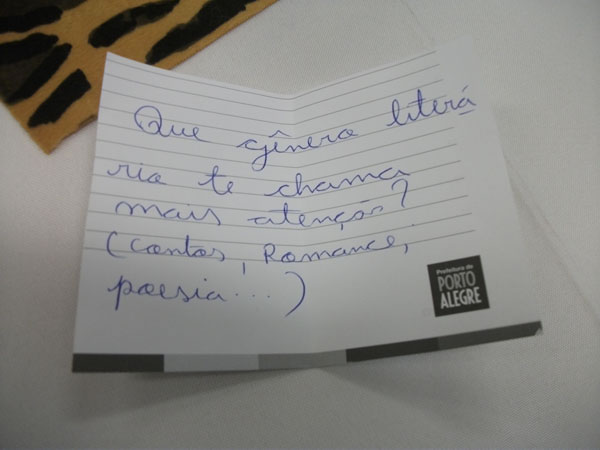 Que gênero literá
rio te chama
mais atenção?
(contos, Romance,
poesia...)
Prefeitura de
PORTO
ALEGRE